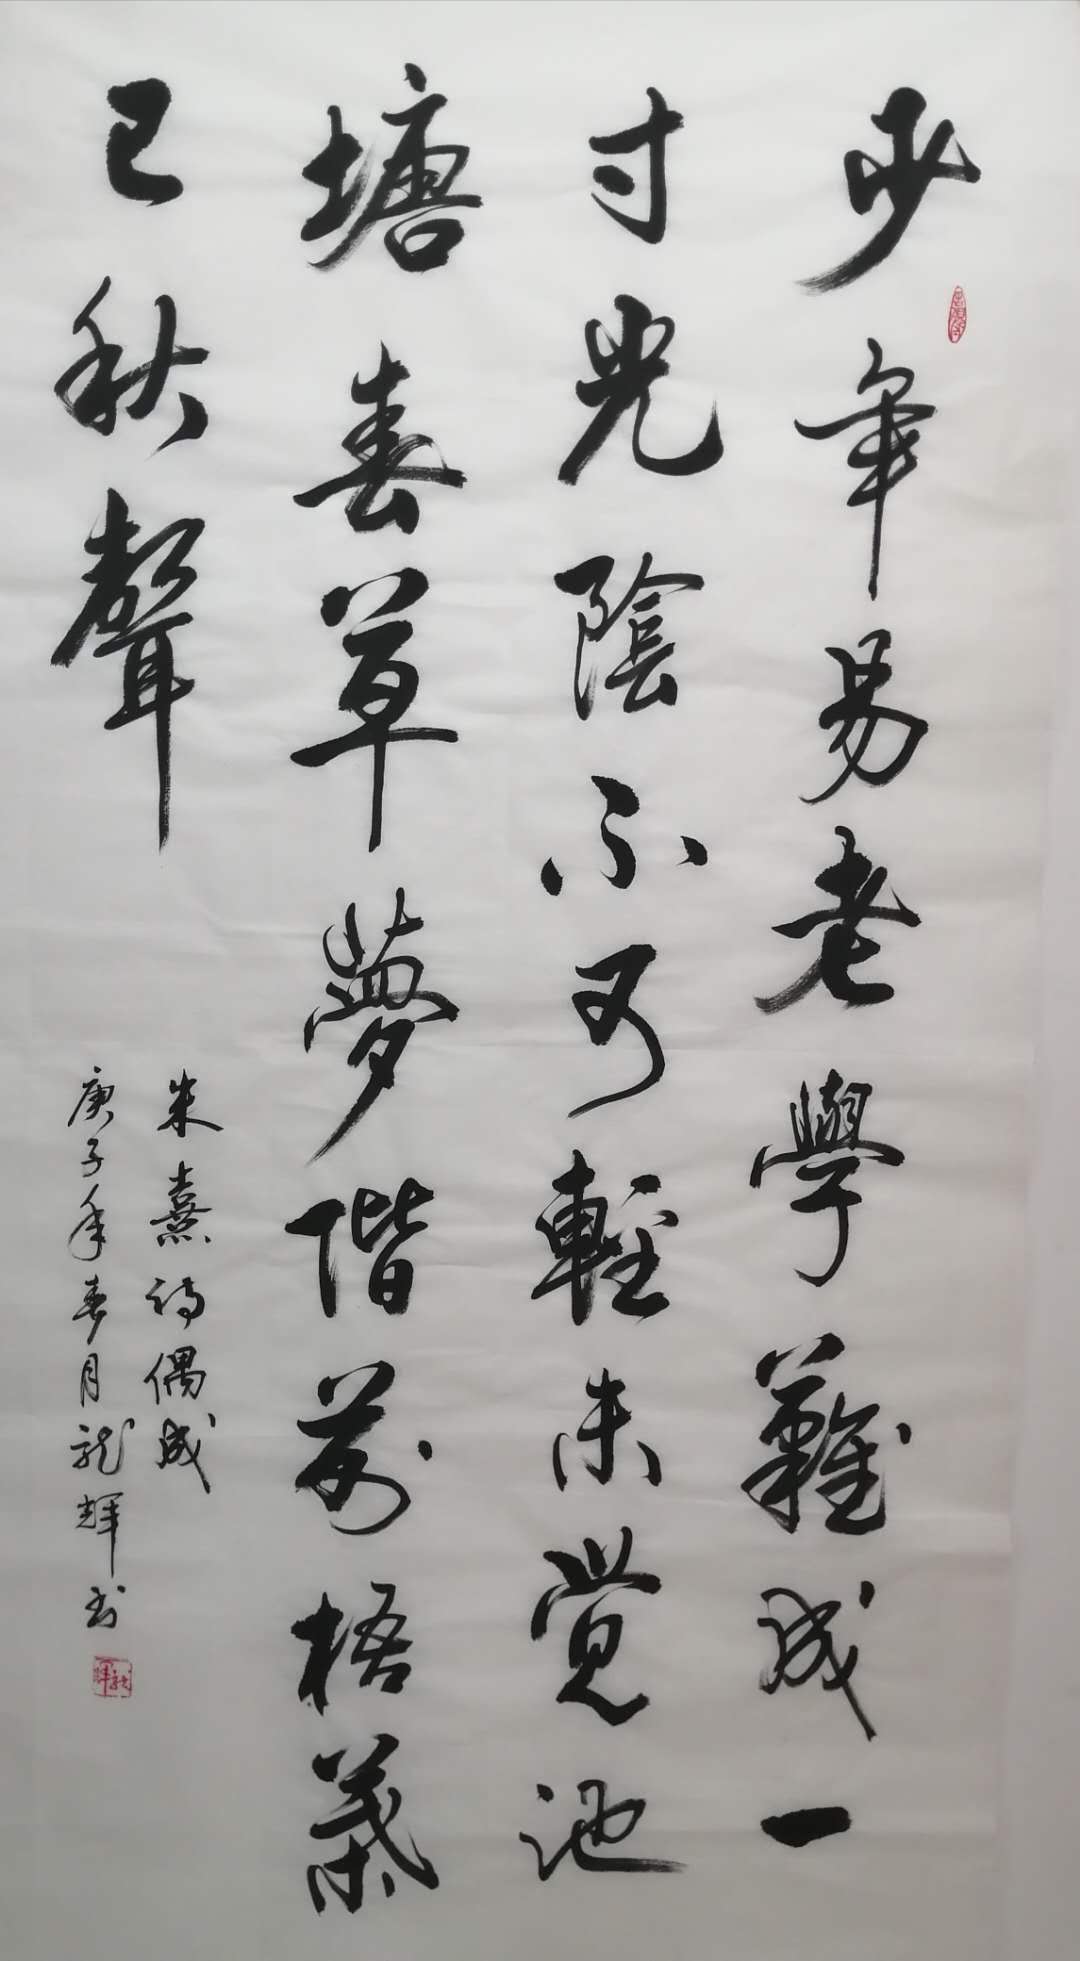 少年易老學難成一
寸光陰不可輕未覺池
塘春草夢階前梧葉
已秋聲
朱熹詩偶成
庚子年春月龍輝書